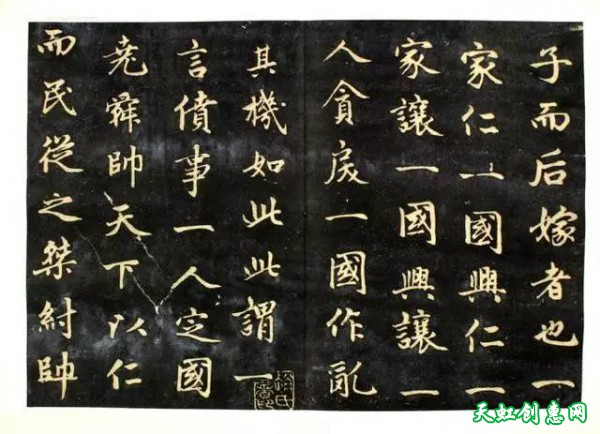 子而后嫁者也一
家仁一國興仁一
家讓一國興讓一
人貪戾一國作亂
其機如此此謂一
言僨事一人定國
堯舜帥天下以仁
而民從之桀紂帥
天虹创惠网